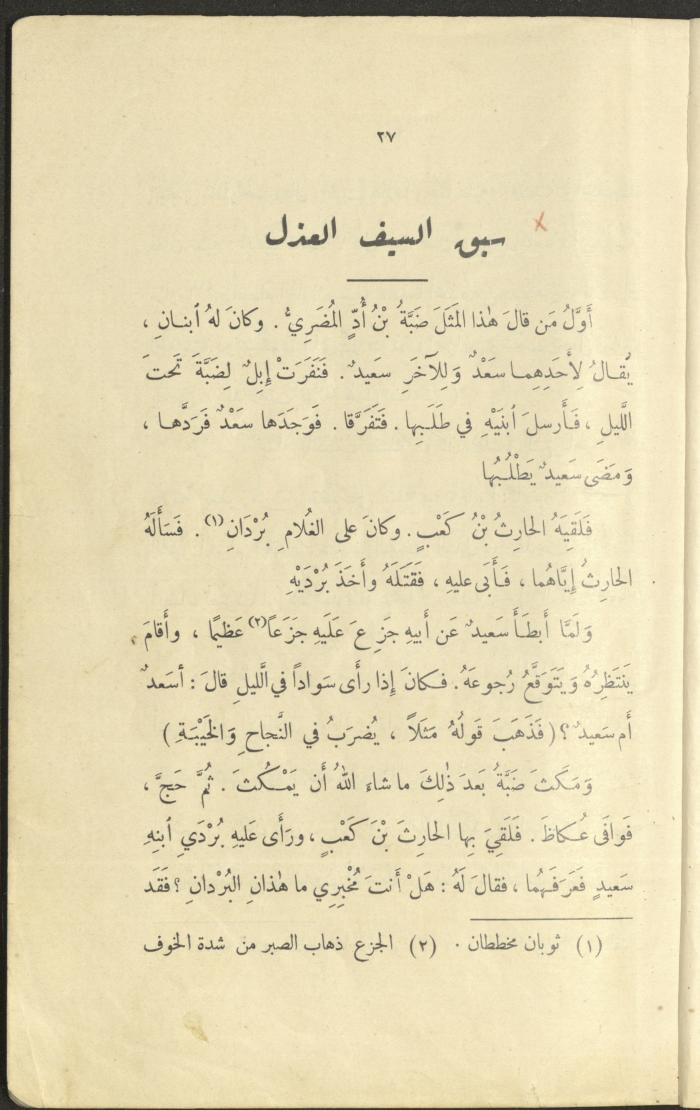 ٢٧
سبق السيف العذل
أَوَّلُ مَن قالَ هٰذا المَثَلَ ضَبَّةُ بْنُ أُدٍّ المُضَرِيُّ. وكانَ لهُ ٱبنـانِ ،
يُقـالُ لِأَحَدِهِمـا سَعْدٌ وَلِلآخَرِ سَعيدٌ. فَنَفَرَتْ إِبِلٌ لِضَبَّةَ تَحتَ
اللَّيلِ ، فَـأَرسلَ ٱبنَيْهِ في طَلَـبِها. فَتَفَرَّقا. فَوَجَدَها سعْدٌ فَرَدَّهـا ،
وَمَضَى سَعيدٌ يَطْلُـبُها
فَلَقِيَهُ الحارِثُ بْنُ كَعْبٍ. وكانَ على الغُلامِ بُرْدَانِ (١). فَسَأَلَهُ
الحارِثُ إِيَّاهُما ، فَـأَبَى عليهِ ، فَقَتَلَهُ وأَخَذَ بُرْدَيْهِ
وَلَمَّا أَبطَـأَ سَعيدٌ عَن أَبيهِ جَزِعَ عَلَيهِ جَزَعاً (٢) عَظيمًا ، وأَقامَ
يَنتَظِرُهُ وَيَتَوَقَّعُ رُجوعَهُ. فـكانَ إِذا رأَى سَواداً في اللَّيلِ قالَ : أَسَعدٌ
أَم سَعيدٌ ؟ (فَذَهَبَ قَولُهُ مَثَلاً ، يُضرَبُ في النَّجاحِ وَالخَيْبَـةِ)
وَمَـكَثَ ضَبَّةُ بَعدَ ذٰلِكَ ما شاء اللهُ أَن يَمْـكُثَ. ثُمَّ حَجَّ ،
فَوَافَى عُـكاظَ. فَلَقِيَ بِها الحارِثَ بْنَ كَعْبٍ ، ورَأَى عَليهِ بُرْدَيِ ٱبنِهِ
سَعيدٍ فَعَرَفَـهُما ، فقالَ لَهُ : هَلْ أَنتَ مُخْبِرِي ما هٰذانِ البُرْدانِ ؟ فَقَد
(١) ثوبان مخططان. (٢) الجزع ذهاب الصبر من شدة الخوف